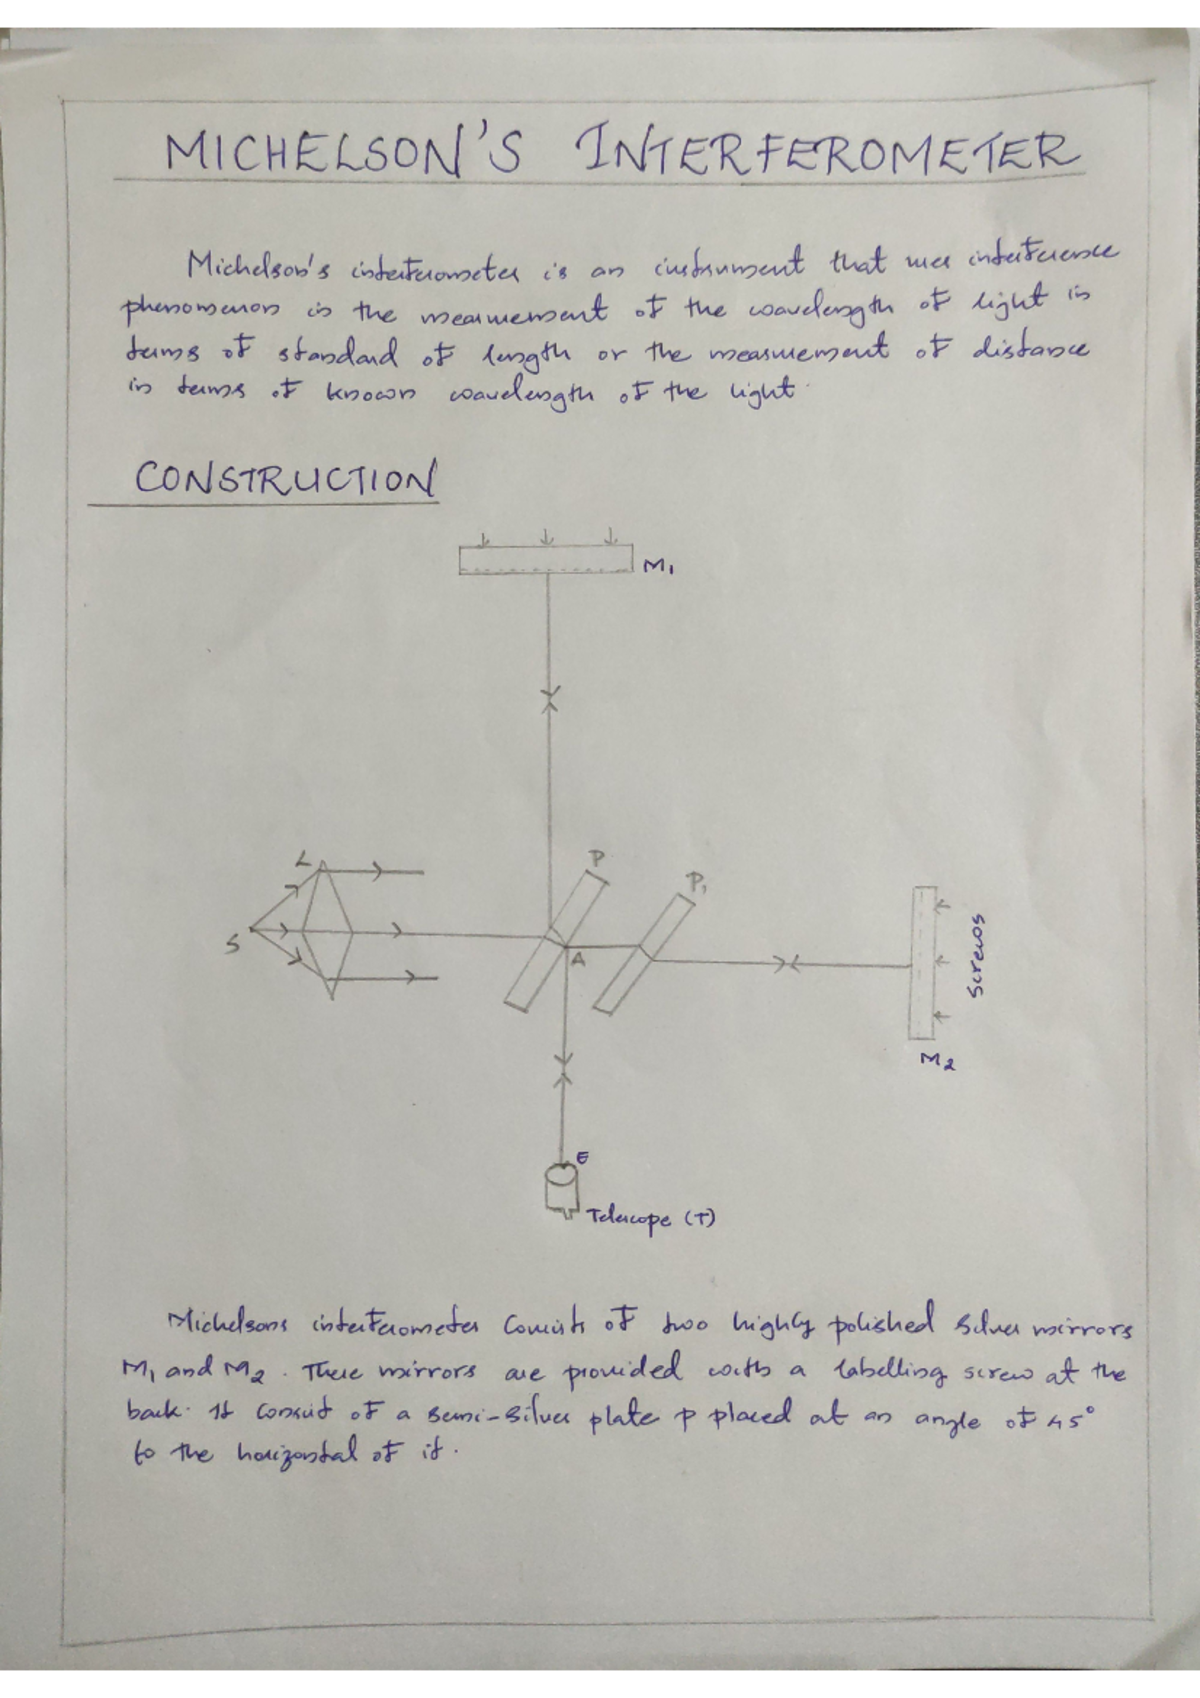 MICHELSON'S INTERFEROMETER
Michelson's interferometer is an instrument that uses interference
phenomenon in the measurement of the wavelength of light in
terms of standard of length or the measurement of distance
in terms of known wavelength of the light.
CONSTRUCTION
M₁
L
P
P₁
S
A
Screws
M₂
E
Telescope (T)
Michelsons interferometer Consists of two highly polished Silver mirrors
M₁ and M₂. These mirrors are provided with a labelling screw at the
back. It consist of a Semi-Silver plate P placed at an angle of 45°
to the horizontal of it.